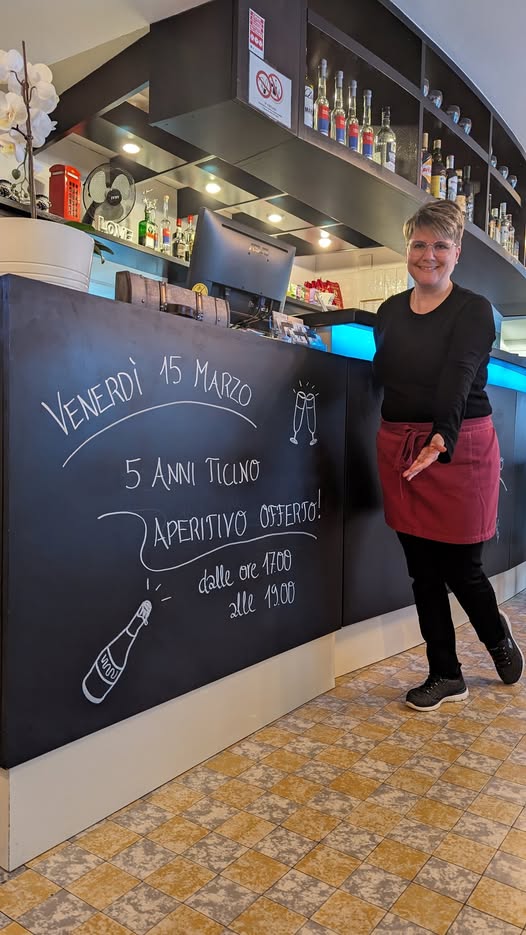 VENERDÌ 15 MARZO
5 ANNI TICINO
APERITIVO OFFERTO!
dalle ore 17.00
alle 19.00
LOVE